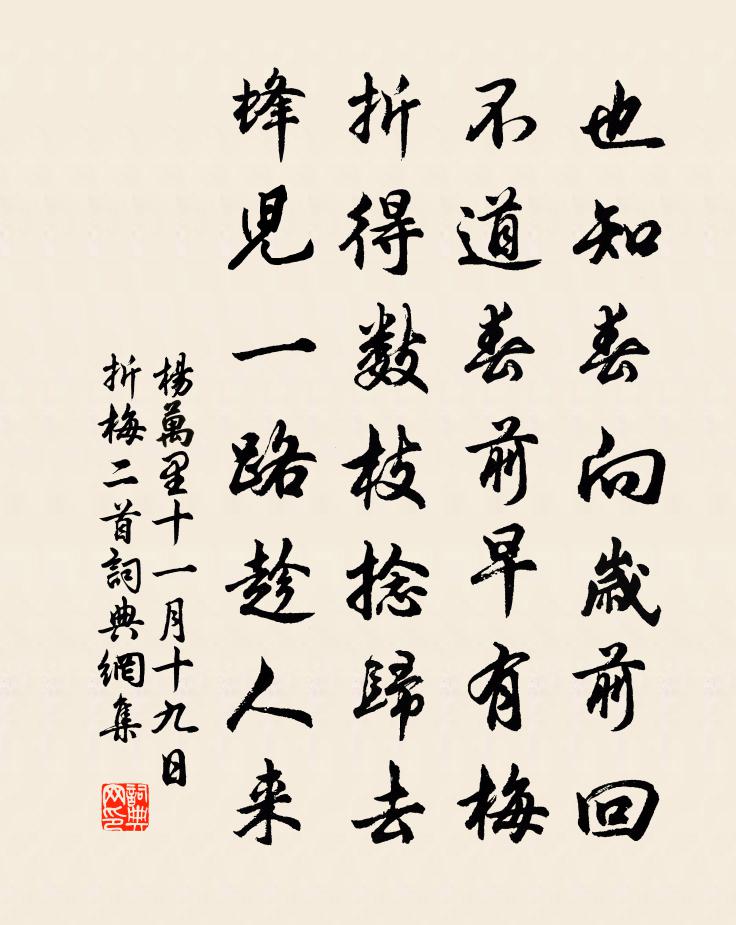 也知春向歲前回
不道春前早有梅
折得數枝捻歸去
蜂児一路趁人来
楊萬里十一月十九日
折梅二首詞典網集
詞典网印